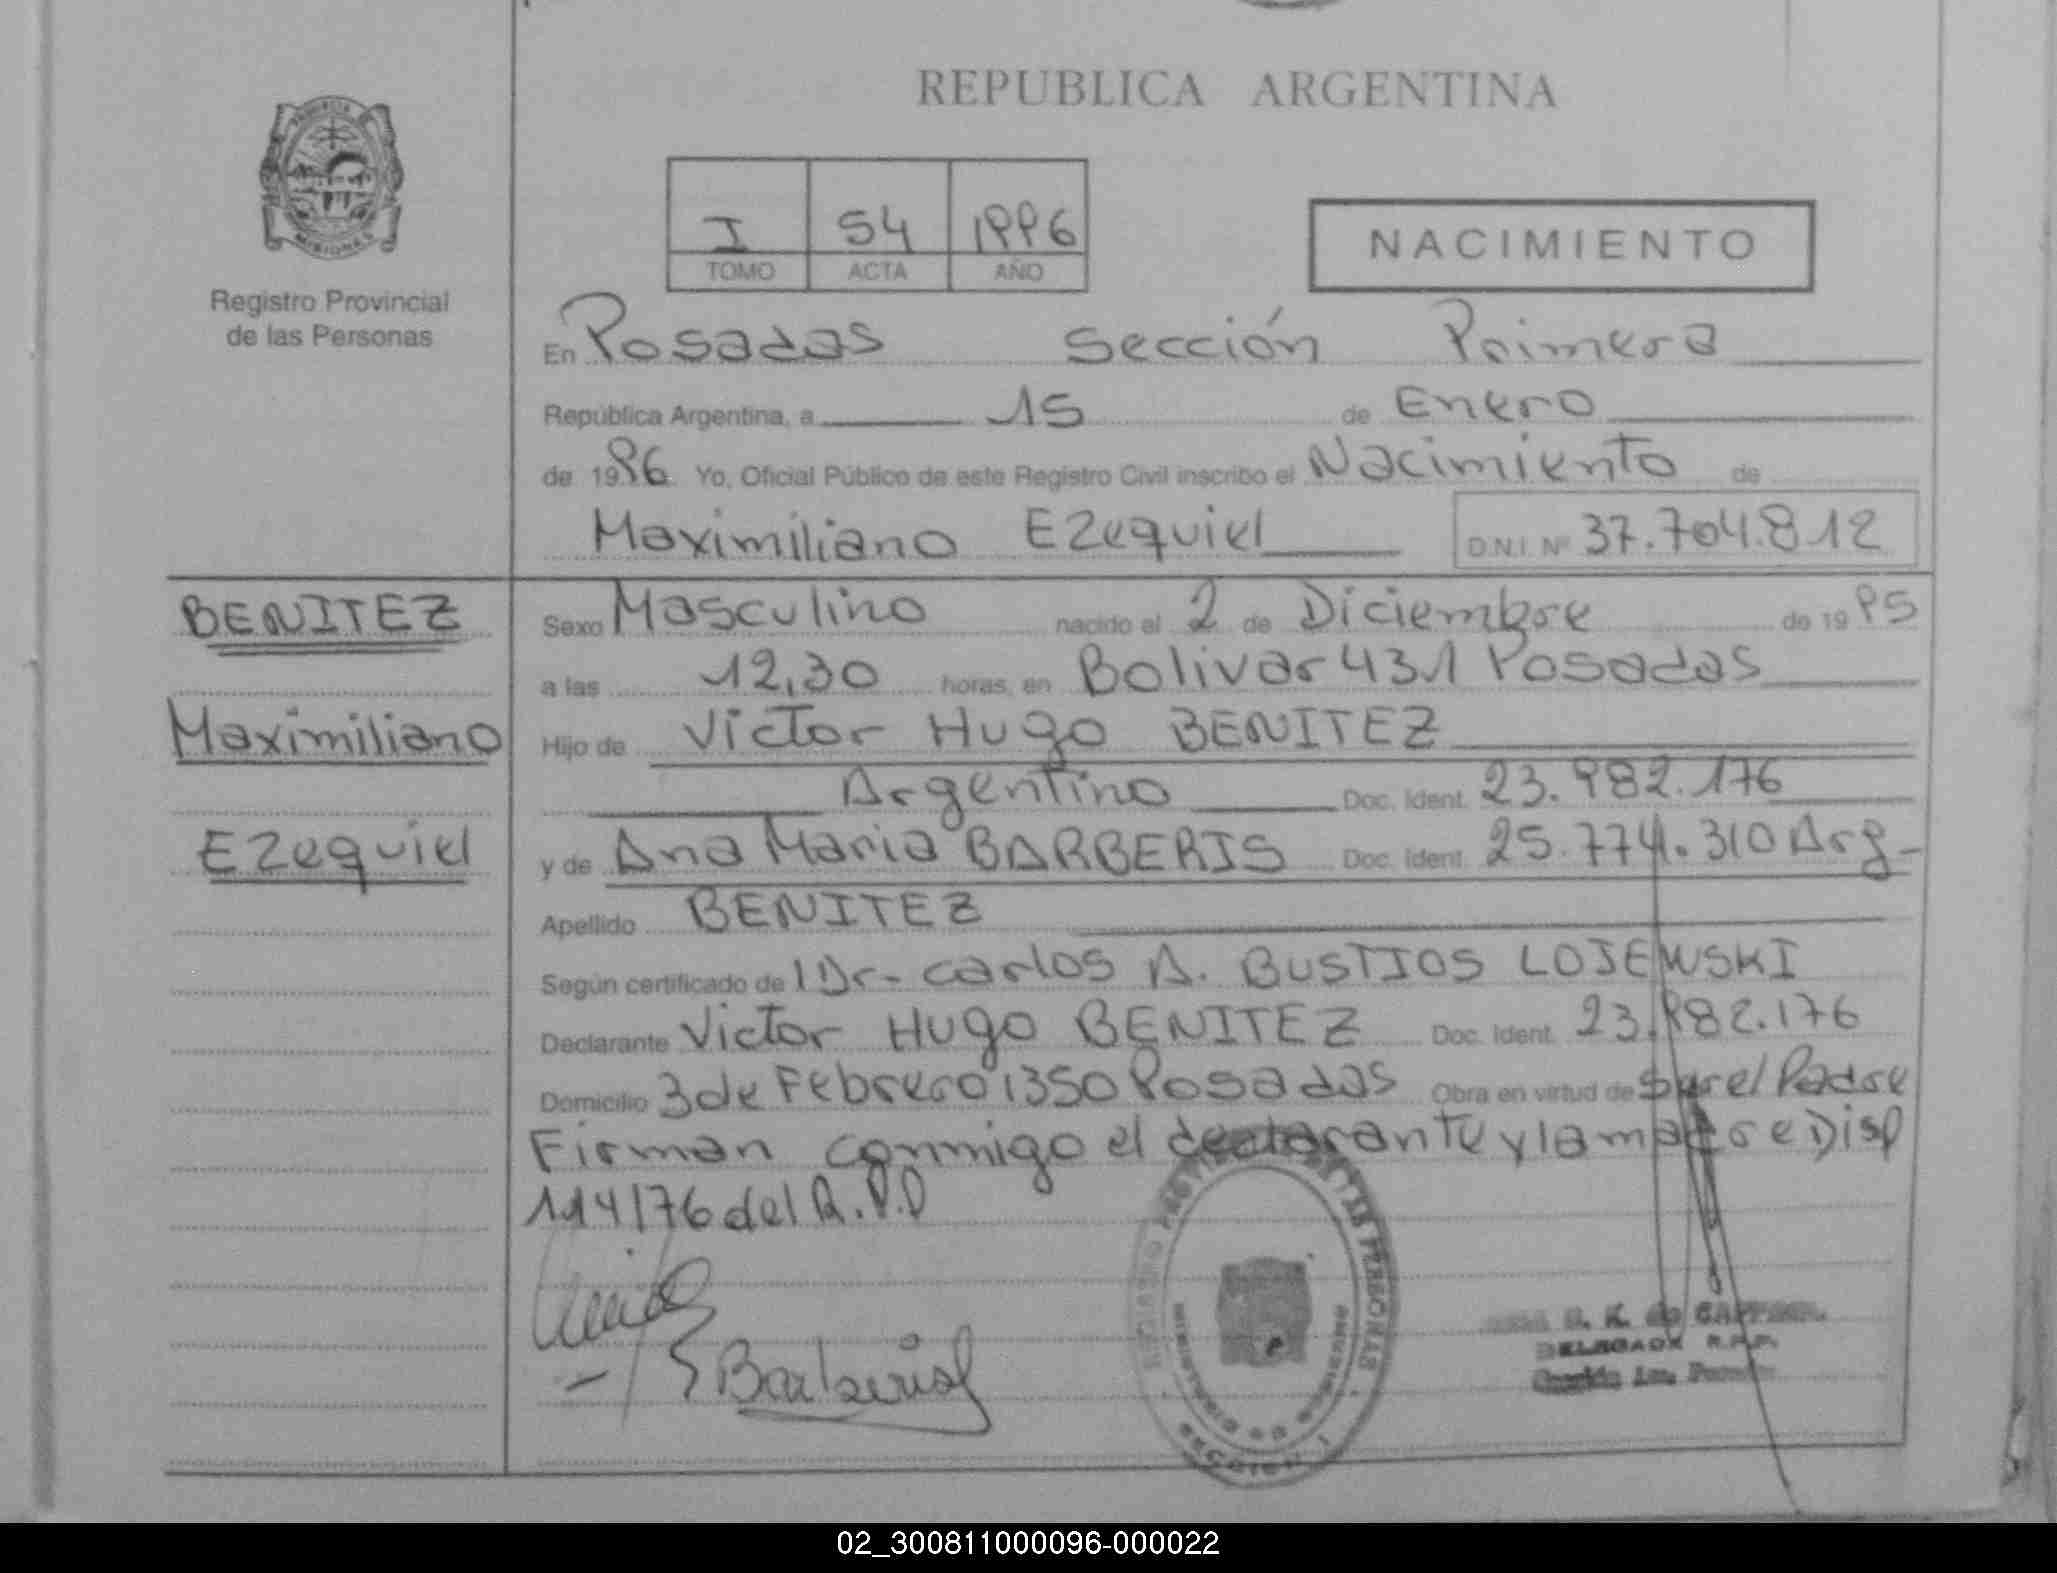 REPUBLICA ARGENTINA
PROVINCIA
MISIONES
Registro Provincial
de las Personas
I 54 1996
TOMO ACTA AÑO
NACIMIENTO
En Posadas Sección Primera
República Argentina, a 15 de Enero
de 1996 Yo, Oficial Público de este Registro Civil inscribo el Nacimiento de
Maximiliano Ezequiel D.N.I. Nº 37.704.812
BENITEZ
Maximiliano
Ezequiel
Sexo Masculino nacido el 2 de Diciembre de 1995
a las 12,30 horas, en Bolivar 431 Posadas
Hijo de Victor Hugo BENITEZ
Argentino Doc. Ident. 23.982.176
y de Ana Maria BARBERIS Doc. Ident. 25.774.310 Arg-
Apellido BENITEZ
Según certificado de Dr- Carlos A. BUSTIOS LOJEWSKI
Declarante Victor Hugo BENITEZ Doc. Ident. 23.982.176
Domicilio 3 de Febrero 1350 Posadas Obra en virtud de ser el Padre
Firman conmigo el declarante y la madre Disp
114/76 del R.P.P
Barberis
REGISTRO PROVINCIAL DE LAS PERSONAS
MINISTERIO DE GOBIERNO
SECCION 1
DELEGADA R.P.P.
02_300811000096-000022